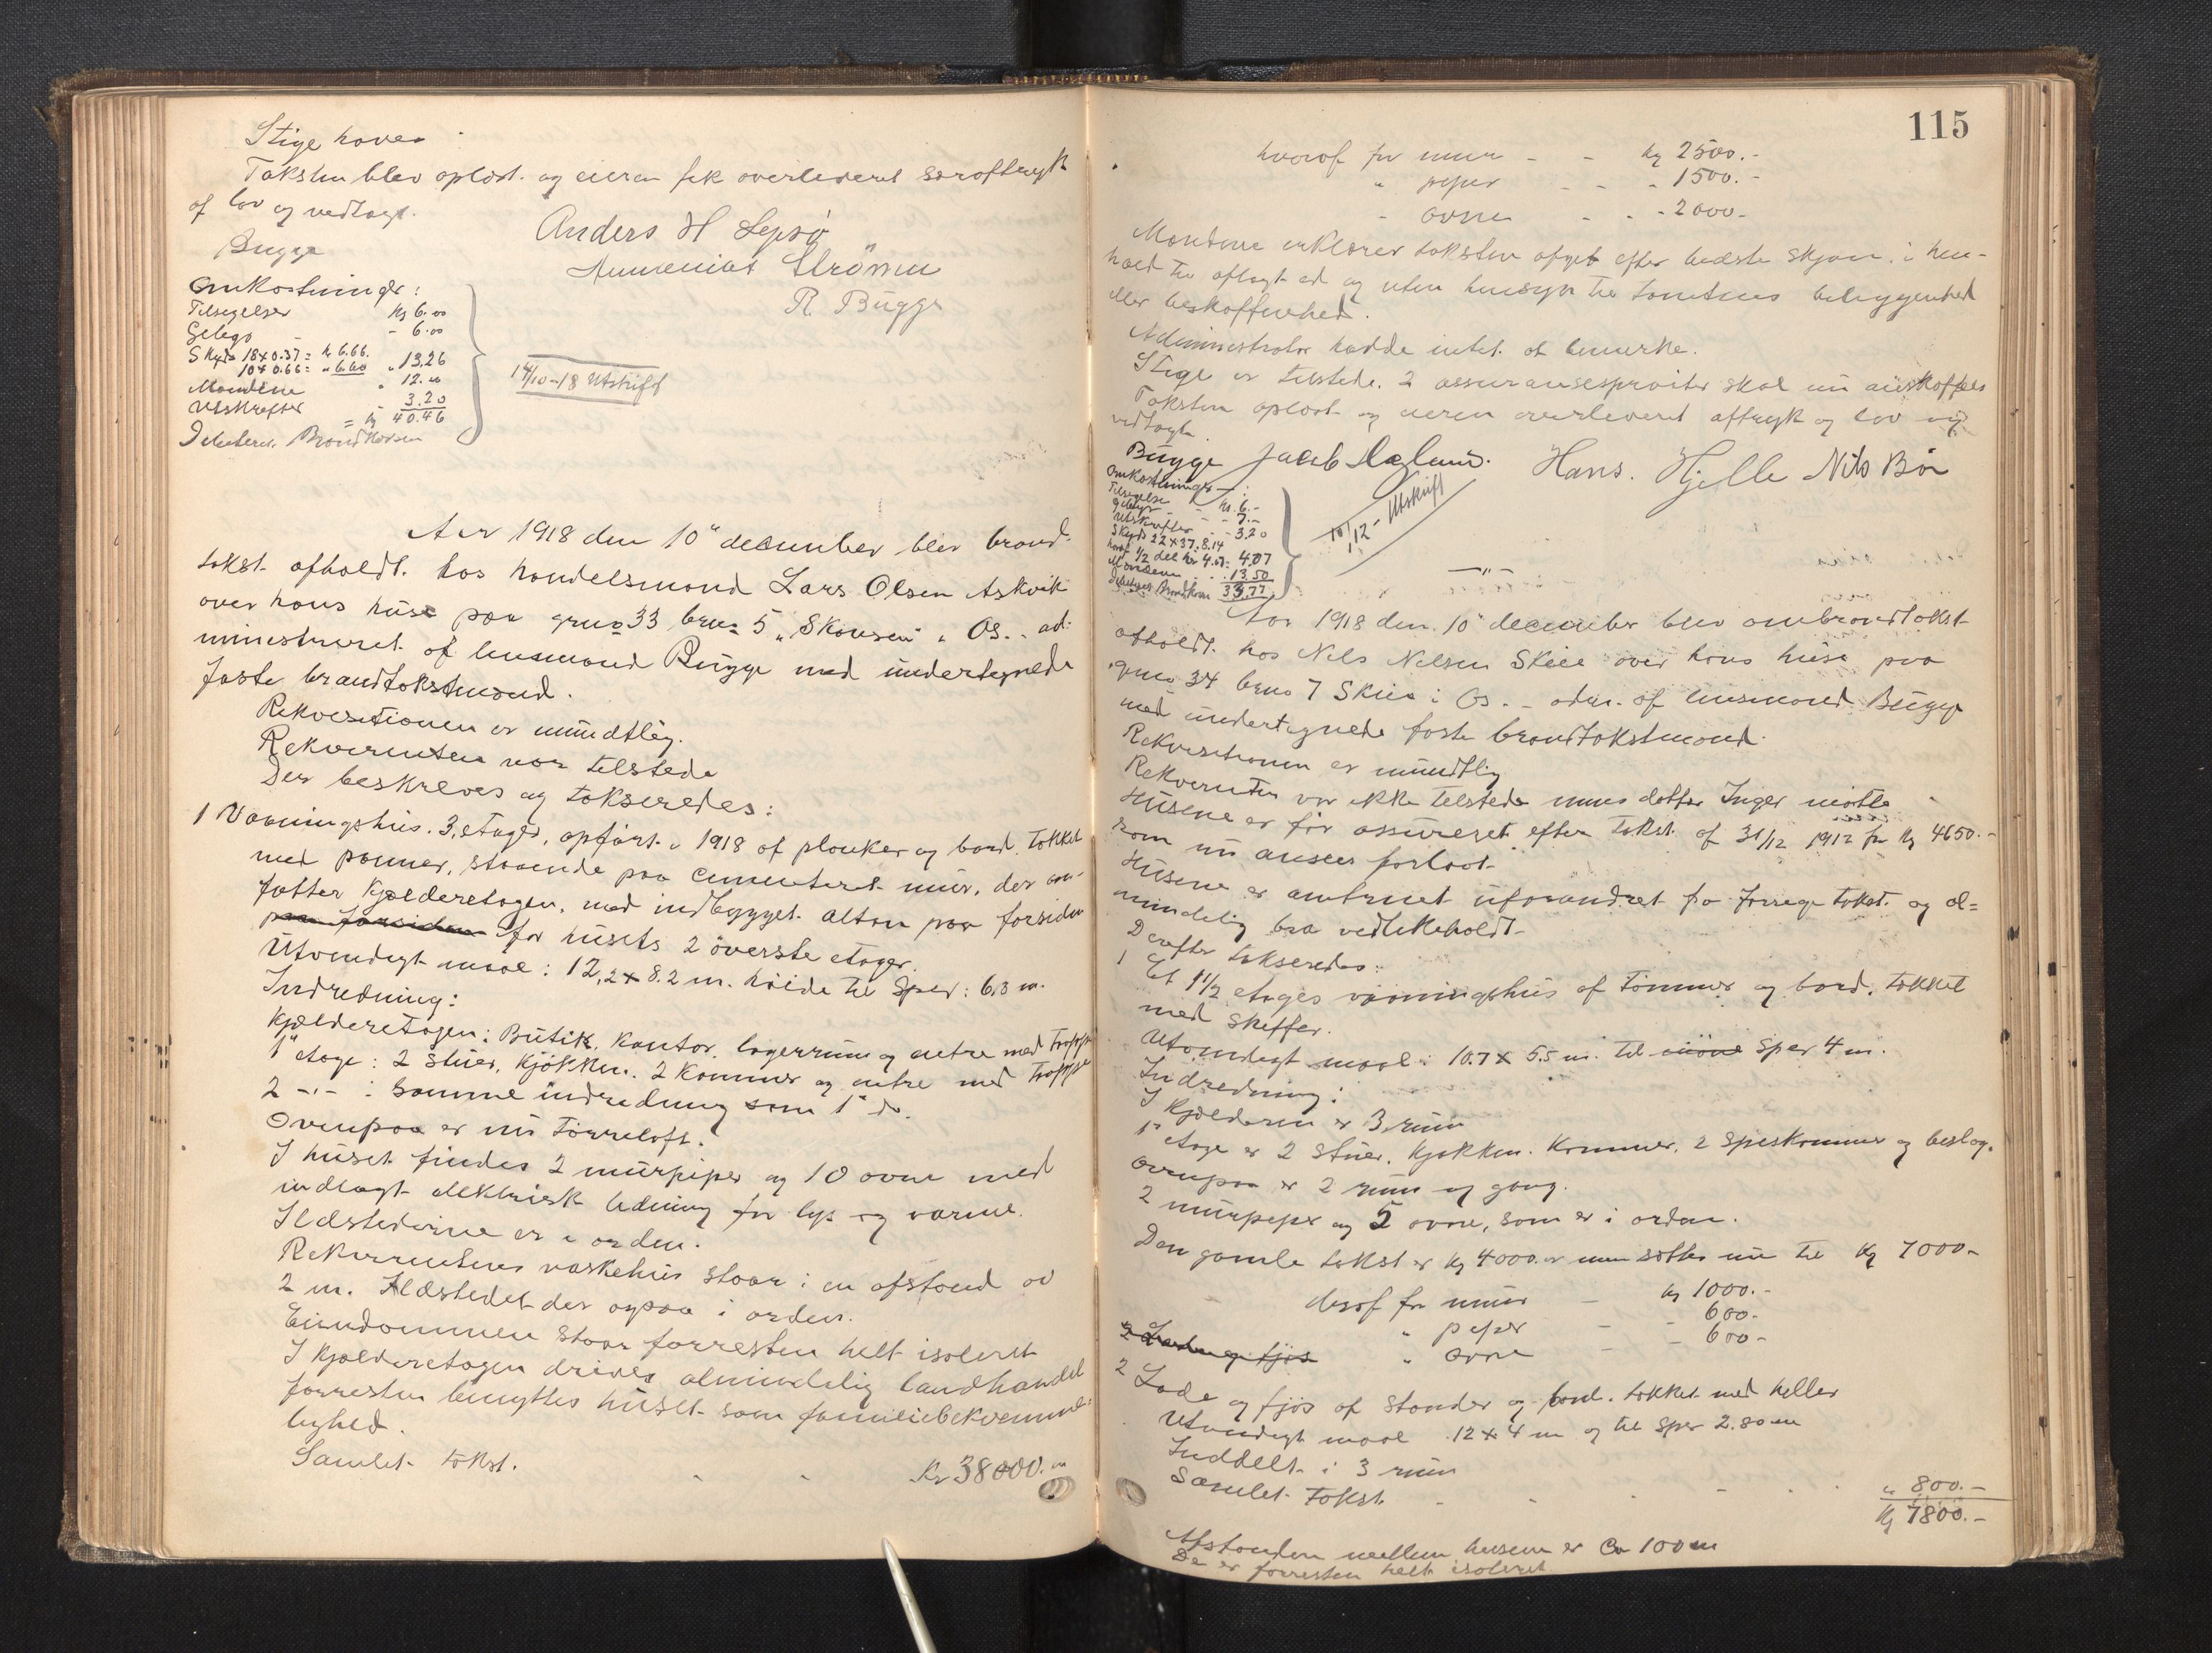 Stige haves
Taksten blev oplæst og eieren fik overleveret særaftryk
af lov og vedtægt.
Bugge
Anders H Lepsø
Strömm
R. Bugge
Omkostninger:
Tilsigelser Kr 6.00
Gebyr - 6.00
Skyds 18x0.37 = kr 6.66.
10x0.66 = " 6.60 " 13.26
Mændene " 12.00
Utskrifter - 3.20
= kr 40.46
Debiteres Brandkassen
14/10-18 Utskrift
Aar 1918 den 10de december blev brand-
takst afholdt hos handelsmand Lars Olsen Askvik
over hans huse paa gno 33 bno 5 "Skansen" i Os. - ad-
ministreret af lensmand Bugge med undertegnede
faste brandtakstmænd.
Rekvisitionen er mundtlig.
Rekvirenten var tilstede
Der beskreves og takseredes:
1 Vaaningshus. 3 etager, opført i 1918 af planker og bord. Tækket
med panner, staaende paa cementeret mur, der om-
fatter kjælderetagen, med indbygget altan paa forsiden
paa forsiden for husets 2 øverste etager.
Utvendigt maal: 12,2 x 8.2 m. høide til sper: 6,3 m.
Indredning:
Kjælderetagen: Butik, Kontor, lagerrum og entre med trappe
1ste etage: 2 stuer, kjøkken, 2 kammer og entre med trappe
2 -"- : samme indredning som 1ste do.
Ovenpaa er nu tørreloft.
I huset findes 2 murpiper og 10 ovne med
indlagt elektrisk ledning for lys og varme.
Ildstederne er i orden.
Rekvirentens vaskehus staar i en afstand av
2 m. Ildstedet der ogsaa i orden.
Eiendommen staar forresten helt isoleret
I Kjælderetagen drives almindelig landhandel
forresten benyttes huset som familiebekvemme-
lighed.
Samlet takst. - - Kr 38000.00
115
hvoraf for mur - - kr 2500.-
" piper - - - 1500.-
- ovne - - - 2000-
Mændene erklærer taksten afgit efter bedste skjøn i hen-
hold til aflagt ed og uten hensyn til tomtens beliggenhed
eller beskaffenhed.
Administrator hadde intet at bemerke.
Stige er tilstede. 2 assuransesprøiter skal nu anskaffes
Taksten oplæst og eieren overleveret aftryk og lov og
vedtægt.
Bugge Jacob Hans. Hjelle Nils Bøe
Omkostninger:
Tilsigelse - kr. 6.-
Gebyr - - 7.-
Utskrifter - - 3.20
Skyds 22x37. 8.14
heraf 1/2 del kr 4.07: 4.07
Mændene - . 13.50
Debiteres Brandkassen 33.77
10/12- Utskrift
-"-
Aar 1918 den 10de december blev ombrandtakst
afholdt hos Nils Nilsen Skeie over hans huse paa
gno 34 bno 7 Skeie i Os. - adm. af lensmand Bugge
med undertegnede faste brandtakstmænd.
Rekvisitionen er mundtlig
Rekvirenten var ikke tilstede men datter Inger møtte
Husene er før assureret efter takst af 31/12 1912 for kr 4650.-
som nu ansees forlavt
Husene er omtrent uforandret fra forrige takst og al=
mindelig bra vedlikeholdt-
Derefter takseredes:
1 Et 1 1/2 etages vaaningshus af tømmer og bord, tækket
med skiffer.
Utvendigt maal: 10.7 x 5.5 m. til møne sper 4 m.
Indredning:
I Kjælderen er 3 rum
1ste etage er 2 stuer, kjøkken, kammer, 2 speskammer og beslag.
Ovenpaa er 2 rum og gang.
2 murpiper og 5 ovne, som er i orden.
Den gamle takst er kr 4000.00 men sættes nu til kr 7000-
deraf for mur - kr 1000.-
" piper - - 600-
" ovne - - 600-
2 Lade og fjøs
2 Lade og fjøs af stender og bord, tækket med heller
Utvendigt maal 12 x 4 m og til sper 2.80 m
Inddelt i 3 rum
" 800.-
Samlet takst. - - - - Kr 7800.-
Afstanden mellem husene er Ca 100 m
De er forresten helt isoleret